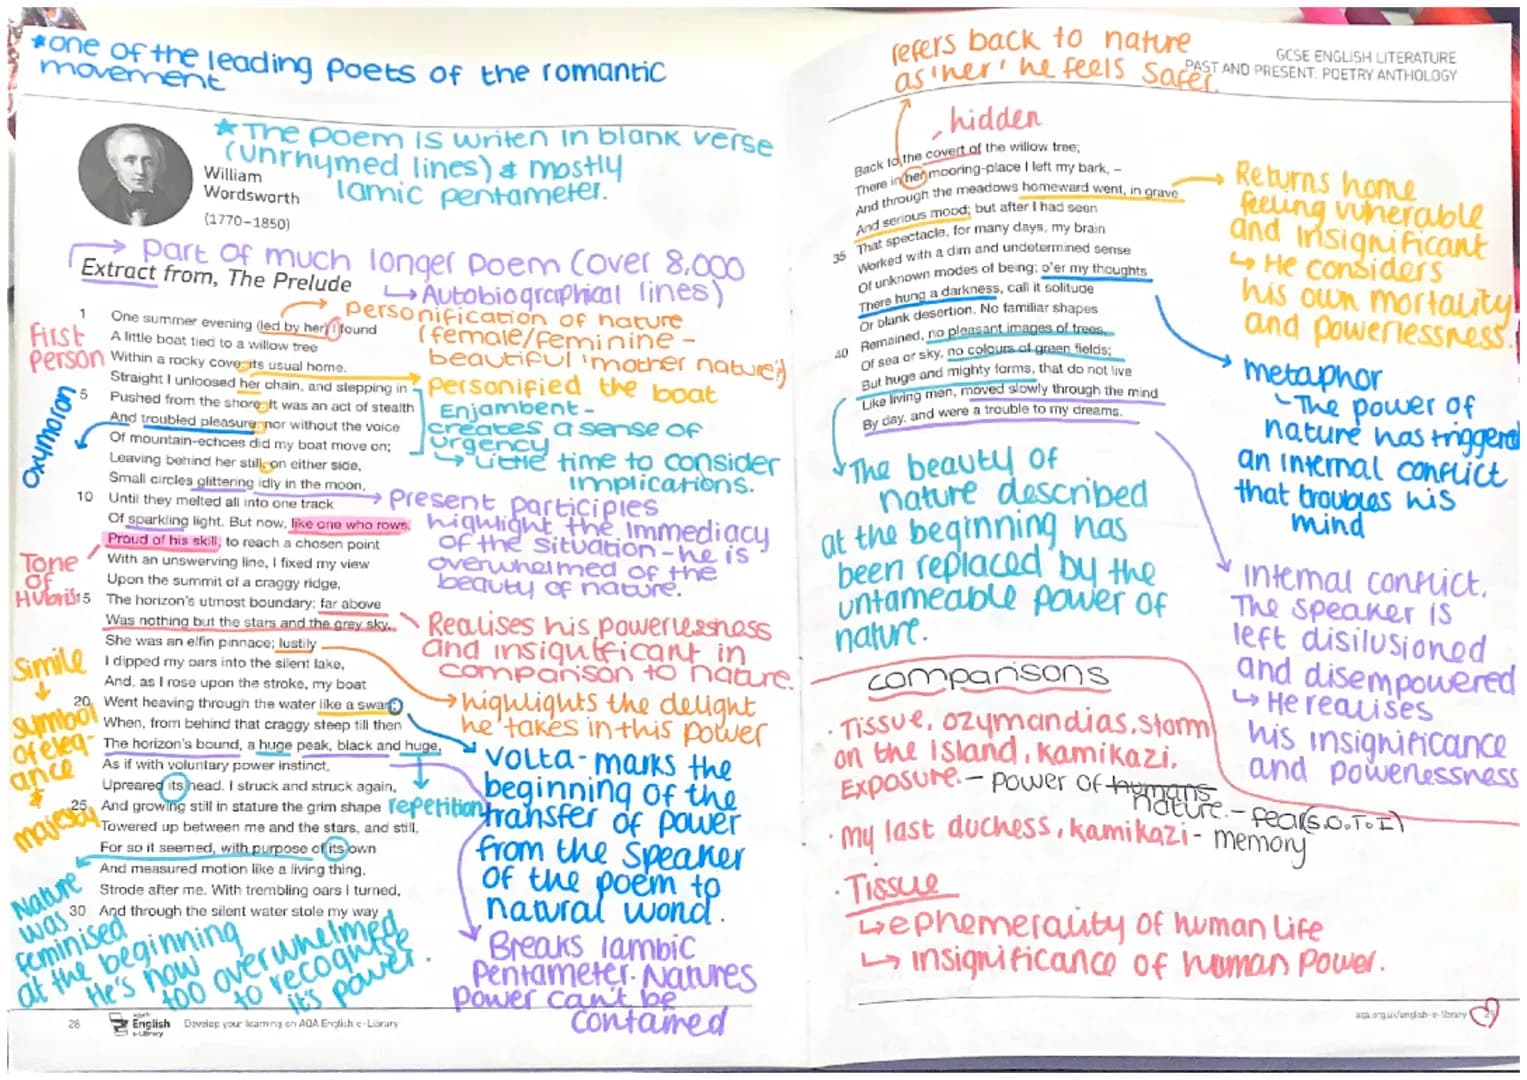 *one of the leading poets of the romantic
movement
*The poem is writen in blank verse
(unrhymed lines) & mostly
Iamic pentameter.
William
Wordsworth
(1770–1850)
→ Part of much longer poem (over 8,000
↳ Autobiographical lines)
Extract from, The Prelude
1 One summer evening (led by her) I found
A little boat tied to a willow tree
Within a rocky cove, its usual home.
Straight I unloosed her chain, and stepping in
5 Pushed from the shore. It was an act of stealth
And troubled pleasure, nor without the voice
Of mountain-echoes did my boat move on;
Leaving behind her still, on either side,
Small circles glittering idly in the moon,
10 Until they melted all into one track
Of sparkling light. But now, like one who rows,
Proud of his skill, to reach a chosen point
With an unswerving line, I fixed my view
Upon the summit of a craggy ridge,
15 The horizon's utmost boundary; far above
Was nothing but the stars and the grey sky.
She was an elfin pinnace; lustily
I dipped my oars into the silent lake,
And, as I rose upon the stroke, my boat
20 Went heaving through the water like a swan;
When, from behind that craggy steep till then
The horizon's bound, a huge peak, black and huge,
As if with voluntary power instinct,
Upreared its head. I struck and struck again,
25 And growing still in stature the grim shape
Towered up between me and the stars, and still,
For so it seemed, with purpose of its own
And measured motion like a living thing,
Strode after me. With trembling oars I turned,
30 And through the silent water stole my way
First
person
oxymoron
Tone
of
Hubris
Simile
↓
symbol
of eleg-
ance
&
majesty
Nature
was
feminised
at the beginning
He's now
too overwhelmed
to recognise
it's power.
personification of nature
(female/feminine -
beautiful 'mother nature')
personified the boat
Enjambent -
creates a sense of
urgency
↳ little time to consider
implications.
Present participles
highlight the immediacy
of the situation - he is
overwhelmed of the
beauty of nature.
Realises his powerlessness
and insignificant in
comparison to nature.
highlights the delight
he takes in this power
repetition
volta - marks the
beginning of the
transfer of power
from the speaker
of the poem to
natural world.
Breaks Iambic
Pentameter. Natures
power can't be
contained
28
English
e-Library
Develop your learning on AQA English e-Library
refers back to nature
as 'her' he feels safer.
GCSE ENGLISH LITERATURE
PAST AND PRESENT: POETRY ANTHOLOGY
hidden
Back to the covert of the willow tree;
There in her mooring-place I left my bark, –
And through the meadows homeward went, in grave
And serious mood; but after I had seen
35 That spectacle, for many days, my brain
Worked with a dim and undetermined sense
Of unknown modes of being; o'er my thoughts
There hung a darkness, call it solitude
Or blank desertion. No familiar shapes
40 Remained, no pleasant images of trees,
Of sea or sky, no colours of green fields;
But huge and mighty forms, that do not live
Like living men, moved slowly through the mind
By day, and were a trouble to my dreams.
Returns home
feeling vunerable
and insignificant
↳ He considers
his own mortality
and powerlessness.
metaphor
The power of
nature has triggered
an internal conflict
that troubles his
mind
Internal conflict.
The speaker is
left disilusioned
and disempowered
↳ He realises
his insignificance
and powerlessness
The beauty of
nature described
at the beginning has
been replaced by the
untameable power of
nature.
comparisons
· Tissue, ozymandias, storm
on the Island, Kamikazi,
Exposure. – power of humans
nature. – fear (S.O.T.I)
· my last duchess, kamikazi - memory
· Tissue
↳ ephemerality of human life
↳ insignificance of human power.
aqa.org.uk/english-e-library
29